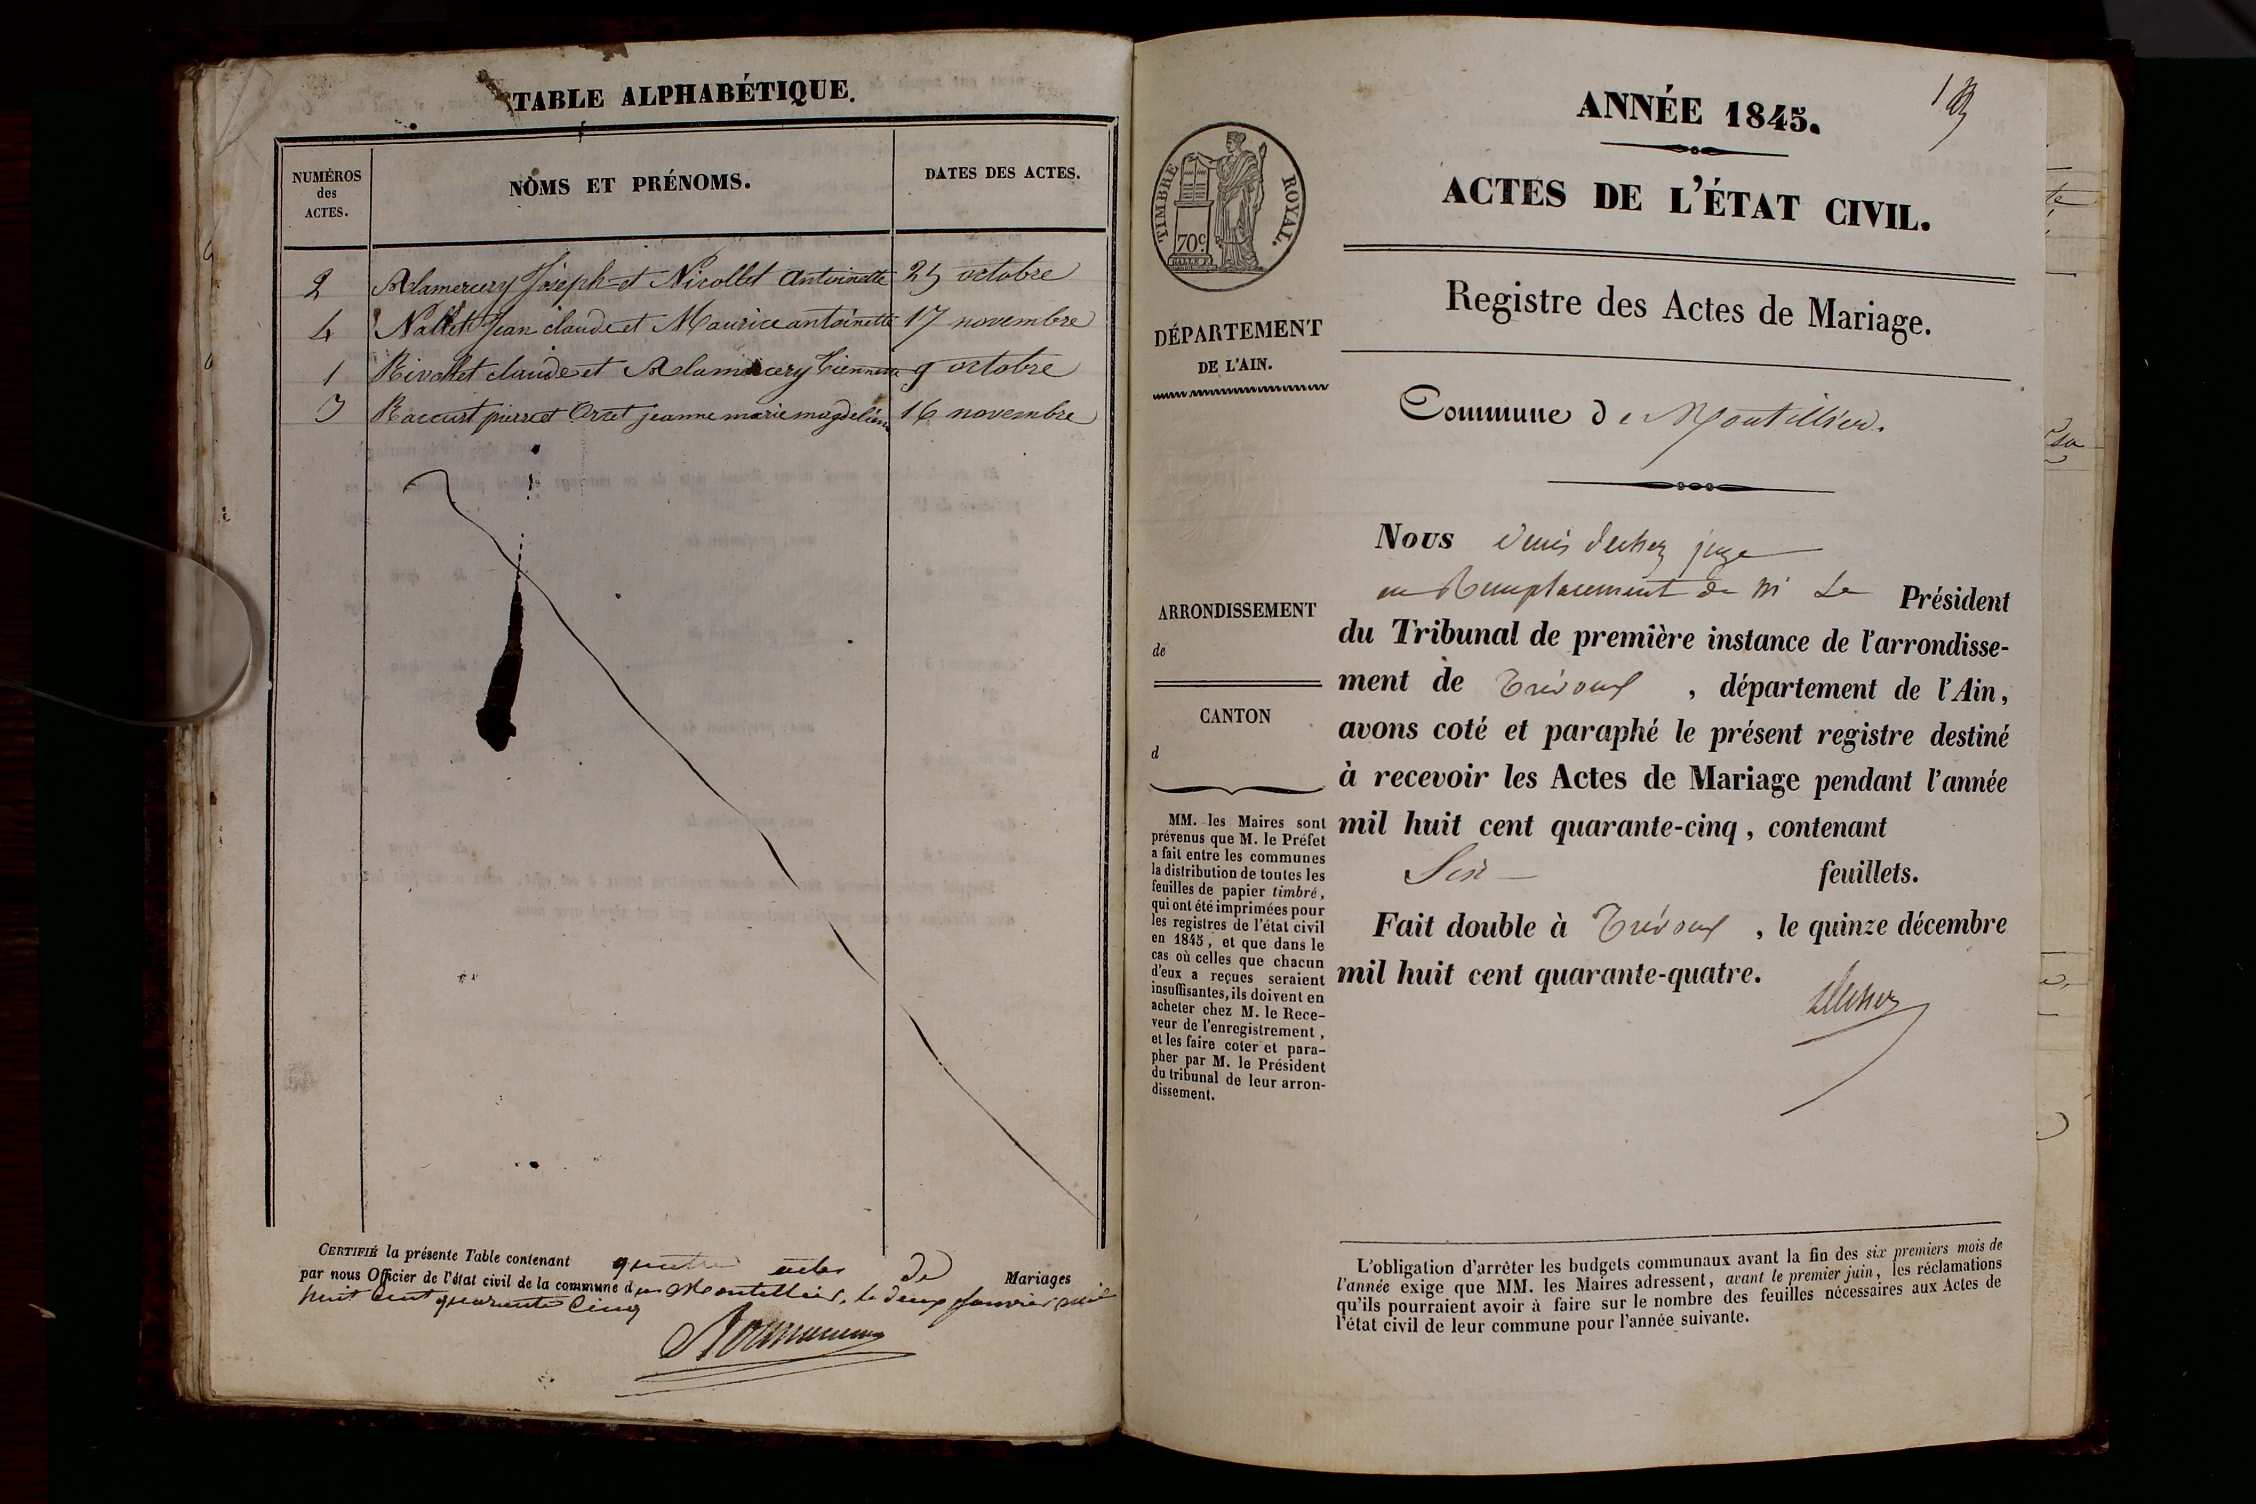 TABLE ALPHABÉTIQUE.
NUMÉROS
des
ACTES.
NOMS ET PRÉNOMS.
DATES DES ACTES.
2 Alamercery Joseph et Nicollet Antoinette 25 octobre
4 Nallet Jean claude et Maurice antoinette 17 novembre
1 Rivollet claude et Alamercery Etiennette 9 octobre
3 Raccurt pierre et Orset jeanne marie magdeleine 16 novembre
CERTIFIÉ la présente Table contenant quatre actes de Mariages
par nous Officier de l'état civil de la commune de Montellier, le deux Janvier mil
huit cent quarante Cinq
ANNÉE 1845.
ACTES DE L'ÉTAT CIVIL.
Registre des Actes de Mariage.
Commune de Montellier.
TIMBRE ROYAL.
70c
DÉPARTEMENT
DE L'AIN.
ARRONDISSEMENT
de
CANTON
d
MM. les Maires sont
prévenus que M. le Préfet
a fait entre les communes
la distribution de toutes les
feuilles de papier timbré,
qui ont été imprimées pour
les registres de l'état civil
en 1845, et que dans le
cas où celles que chacun
d'eux a reçues seraient
insuffisantes, ils doivent en
acheter chez M. le Rece-
veur de l'enregistrement,
et les faire coter et para-
pher par M. le Président
du tribunal de leur arron-
dissement.
Nous Denis Dechez juge
en Remplacement de Mr Le Président
du Tribunal de première instance de l'arrondisse-
ment de Trévoux, département de l'Ain,
avons coté et paraphé le présent registre destiné
à recevoir les Actes de Mariage pendant l'année
mil huit cent quarante-cinq, contenant
Six feuillets.
Fait double à Trévoux, le quinze décembre
mil huit cent quarante-quatre.
Dechez
L'obligation d'arrêter les budgets communaux avant la fin des six premiers mois de
l'année exige que MM. les Maires adressent, avant le premier juin, les réclamations
qu'ils pourraient avoir à faire sur le nombre des feuilles nécessaires aux Actes de
l'état civil de leur commune pour l'année suivante.